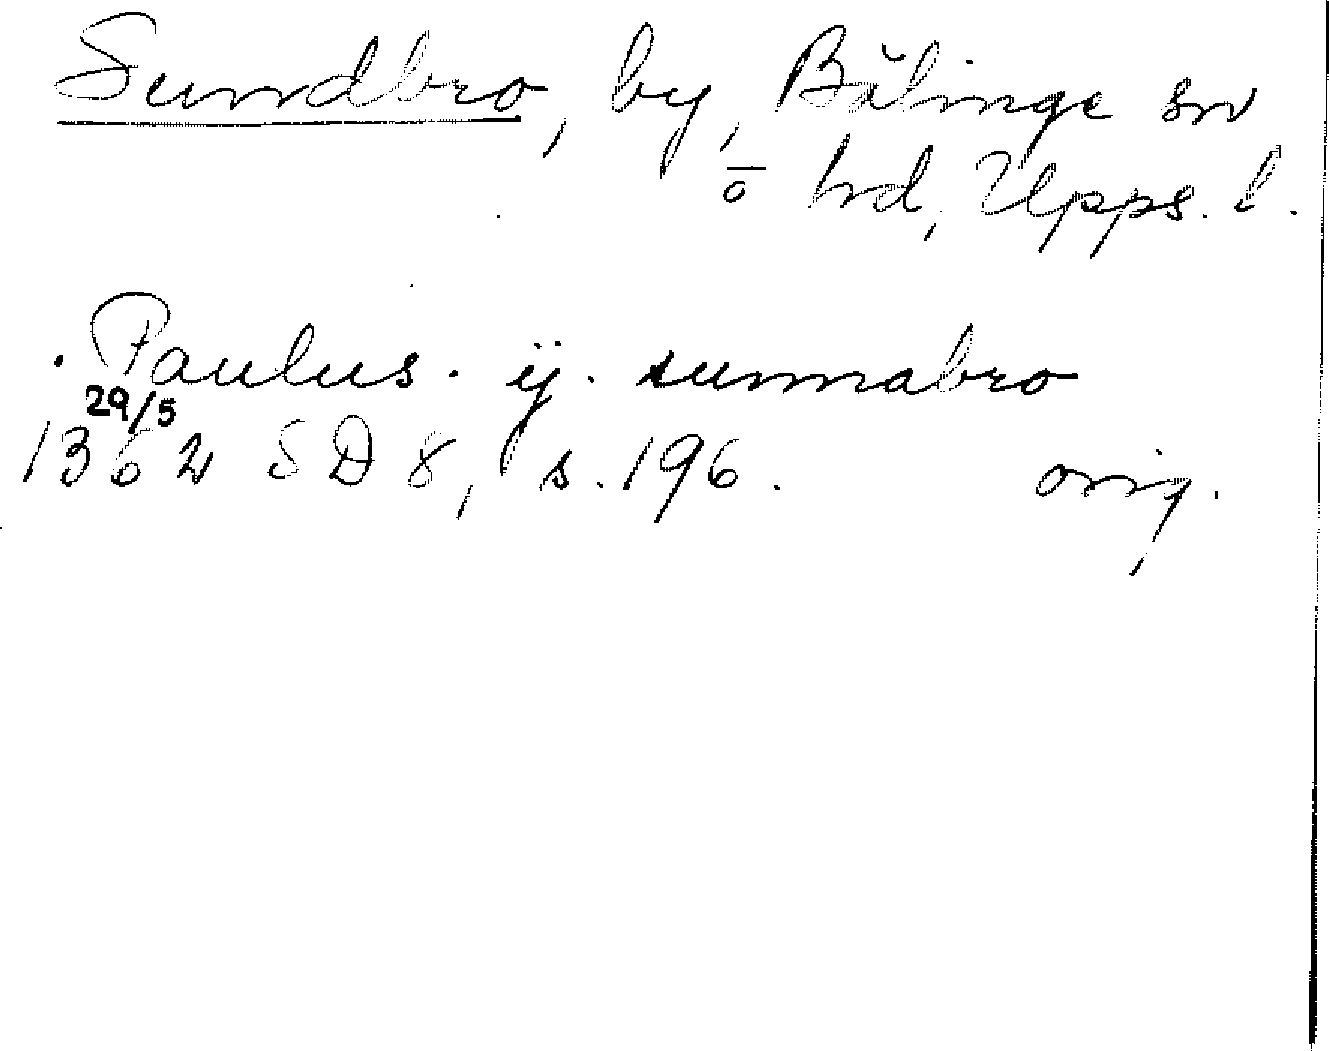 Sundbro, by, Bälinge sn
o hd, Upps. l.
. Paulus . ij . sunnabro
29/5
1362 SD 8, s. 196. orig.